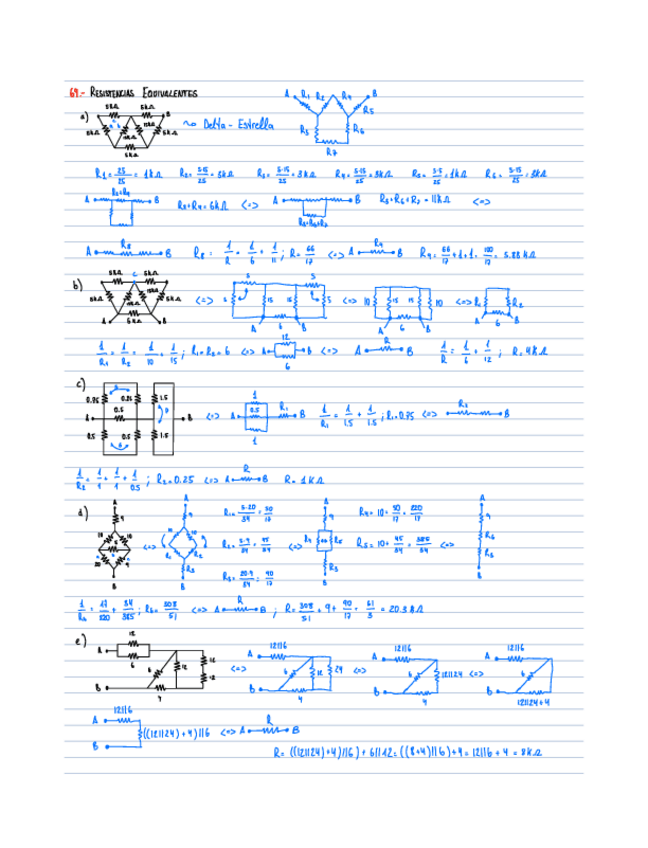 69.- RESISTENCIAS EQUIVALENTES
a) 5kΩ 5kΩ A B 5kΩ 5kΩ 5kΩ
~> Delta - Estrella
A R1 R2 R4 B R5 R3 R6 R7
R1 = 25/25 = 1kΩ R2 = 5·15/25 = 3kΩ R3 = 5·15/25 = 3kΩ R4 = 5·15/25 = 3kΩ R5 = 5·5/25 = 1kΩ R6 = 5·15/25 = 3kΩ
R2+R4 A B R2+R4 = 6kΩ <=> A B R3+R6+R7 R3+R6+R7 = 11kΩ <=>
A R8 B R8 = 1/R = 1/6 + 1/11 ; R = 66/17 <=> A R9 B R9 = 66/17 + 1 + 1 = 100/17 = 5.88 kΩ
b) 5kΩ C 5kΩ 5kΩ 5kΩ A 6kΩ B <=> 5 5 5 15 15 5 A 6 B <=> 10 15 15 10 A 6 B <=> R1 R2 A 6 B
1/R1 = 1/R2 = 1/10 + 1/15 ; R1 = R2 = 6 <=> A 12 6 B <=> A R B 1/R = 1/6 + 1/12 ; R = 4kΩ
c) 0.75 0.25 1.5 A 0.5 B 0.5 0.5 1.5 <=> A 1 0.5 1 R1 B 1/R1 = 1/1.5 + 1/1.5 ; R1 = 0.75 <=> B
1/R2 = 1/1 + 1/1 + 1/0.5 ; R2 = 0.25 <=> A R B R = 1kΩ
d) A 9 10 10 5 20 9 B <=> A 9 10 10 R1 R2 R3 B
R1 = 5·20/34 = 50/17
R2 = 5·9/34 = 45/34
R3 = 20·9/34 = 90/17
<=> A 9 R4 R5 R3 B
R4 = 10 + 50/17 = 220/17
R5 = 10 + 45/34 = 385/34 <=> A 9 R6 R3 B
1/R6 = 17/220 + 34/385 ; R6 = 308/51 <=> A R B ; R = 308/51 + 9 + 90/17 = 61/3 = 20.3 kΩ
e) 12 A 6 6 12 12 12 B 4 <=> 12||6 A 6 12 24 B 4 <=> 12||6 A 6 12||24 B 4 <=> 12||6 A 6 B 12||24+4
12||6 A B ((12||24)+4)||6 <=> A R B
R = ((12||24)+4)||6) + 6||12 = ((8+4)||6)+4 = 12||6 + 4 = 8kΩ